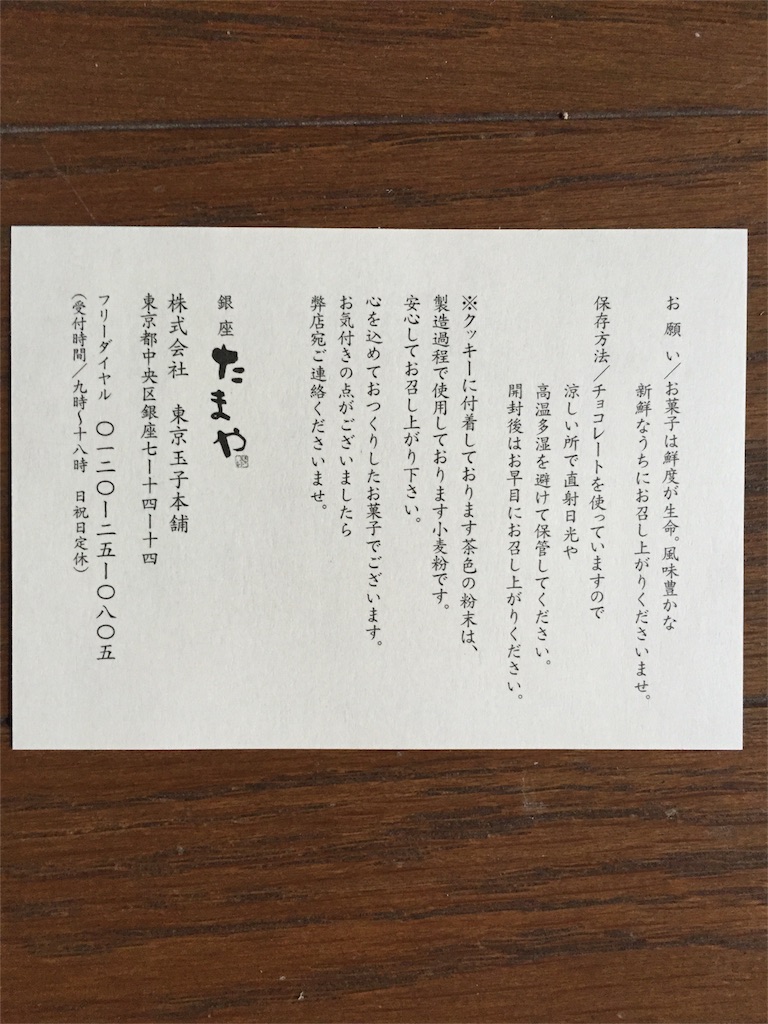 お願い／お菓子は鮮度が生命。風味豊かな
新鮮なうちにお召し上がりくださいませ。
保存方法／チョコレートを使っていますので
涼しい所で直射日光や
高温多湿を避けて保管してください。
開封後はお早目にお召し上がりください。
※クッキーに付着しております茶色の粉末は、
製造過程で使用しております小麦粉です。
安心してお召し上がり下さい。
心を込めておつくりしたお菓子でございます。
お気付きの点がございましたら
弊店宛ご連絡くださいませ。
銀座たまや
株式会社　東京玉子本舗
東京都中央区銀座七ー十四ー十四
フリーダイヤル　〇一二〇ー二五ー〇八〇五
（受付時間／九時〜十八時　日祝日定休）